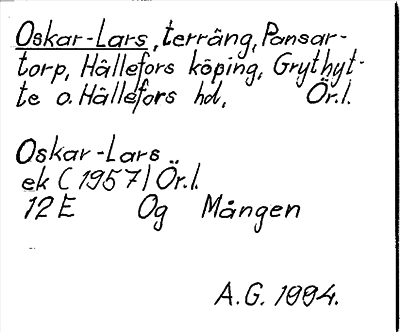 Oskar-Lars, terräng, Pansar-
torp, Hällefors köping, Grythyt-
te o. Hällefors hd, Ör.l.
Oskar-Lars
ek (1957) Ör.l.
12E Og Mången
A.G. 1994.